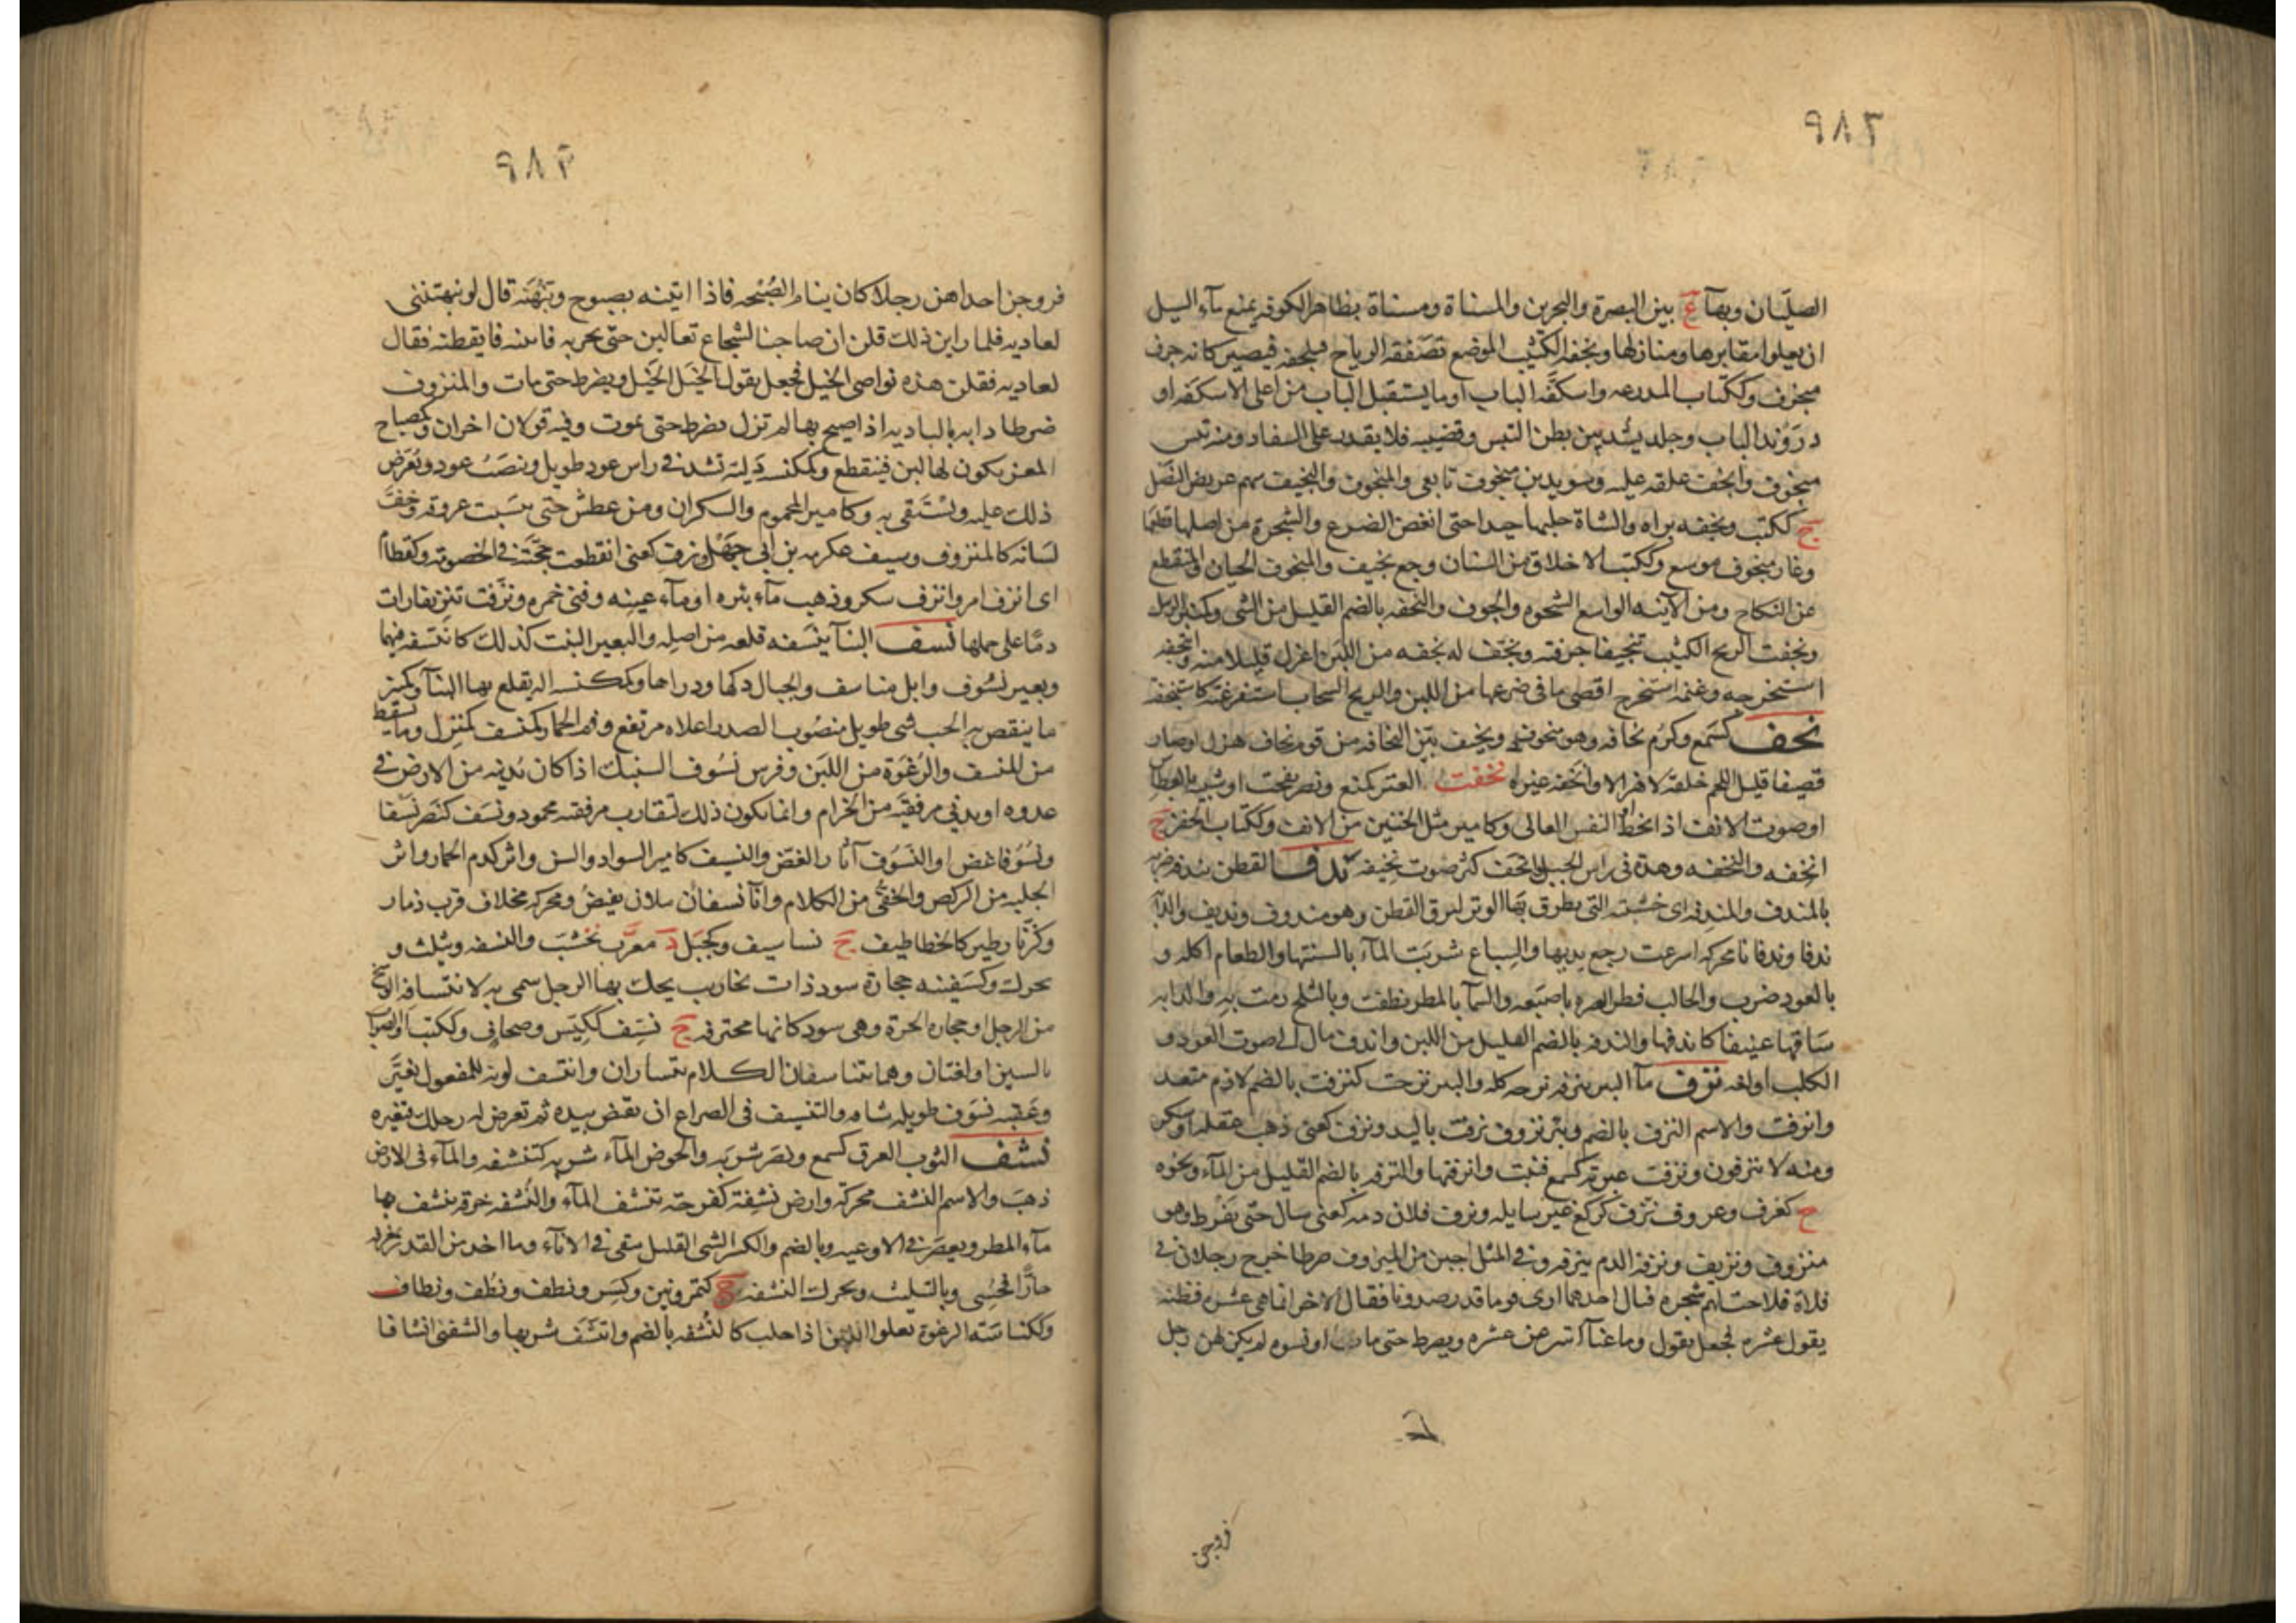 ٩٨٢
الصليان وبهآ ع بين البصرة والبحرين والمسناة ومسناة بظاهر الكوفه يمنع مآء السيل
ان يعلوا مقابرها ومنازلها ونجفة الكثيب الموضع تصفقه الرياح فينجفه فيصير كانه جرف
منجوف وككتاب المدرعه واسكفه الباب او ما يستقبل الباب من اعلى الاسكفه او
دروند الباب وجلد يشد بين بطن التيس وقضيبه فلا يقدر على السفاد ومنه تيس
منجوف وانجف علقه عليه وسويد بن منجوف تابعى والمنجوف والنجيف سهم عريض النصل
ج ككتب ونجفه براه والشاة حلبها جيدا حتى انفض الضرع والشجرة من اصلها قطعها
وغار منجوف موسع وككتب الاخلاق من الشنان وجمع نجيف والمنجوف الجبان والمنقطع
عن النكاح ومن الآنيه الواسع الشحوه والجوف والنجفه بالضم القليل من الشى
ونجفت الريح الكثيب تنجيفا جرفته ونجف له نجفه من اللبن اغرل قليلا منه وانتجفه
استخرجه وغنمه استخرج اقصى ما فى ضرعها من اللبن والريح السحاب استفرغته كاستنجفه
نحف كسمع وكرم نحافه وهو منحوف ونحيف بين النحافه من قوم نحاف هزل او صار
قضيفا قليل اللحم خلقه لا هزالا وانحفه غيره نخفت العنز كمنع ونصر نفخت او شبيه بالعطاس
او صوت الانف اذا مخط او النفس العالى وكامير مثل الخنين من الانف وككتاب الخف ج
انخفه والنخفه وهدة فى راس الجبل وانخف كثر صوت نخيفه ندف القطن يندفه ضربه
بالمندف والمندفه اى خشبته التى يطرق بها الوتر ليرق القطن وهو مندوف ونديف والدآبه
ندفا وندفانا محركه اسرعت رجع يديها والسباع شربت المآء بالسنتها والطعام اكله و
بالعود ضرب والحالب فطر الضره باصبعه والسمآ بالمطر نطفت وبالثلج رمت به والدابه
ساقها عنيفا كاندفها والندفه بالضم القليل من اللبن واندف مال الى صوت العود و
الكلب اولغه نزف مآ البير ينزفه نزحه كله والبير نزحت كنزفت بالضم لازم متعد
وانزفت والاسم النزف بالضم وبئر نزوف نزفت باليد ونزف كعنى ذهب عقله او سكر
ومنه لا ينزفون ونزفت عبرته كسمع فنيت وانزفتها والنزفه بالضم القليل من المآء ونحوه
ج كغرف وعروف نزف كركع غير سايله ونزف فلان دمه كعنى سال حتى يفرط وهو
منزوف ونزيف ونزفه الدم ينزفه وفى المثل اجبن من المنزوف ضرطا خرج رجلان فى
فلاة فلاحت لهم شجره فقال احدهما ارى قوما قد رصدونا فقال الاخر انما هى عشره فظنه
يقول عشره فجعل يقول وما غنآ اثنين عن عشره ويضرط حتى مات او نسوه لم يكن لهن رجل
فزوجن
٩٨٣
فزوجن احداهن رجلا كان ينام الصبحه فاذا اتينه بصبوح ونبهنه قال لو نبهتننى
لعاديه فلما راين ذلك قلن ان صاحبنا لشجاع تعالين حتى نجربه فاتينه فايقظنه فقال
لعاديه فقلن هذه نواصى الخيل فجعل يقول الخيل الخيل ويضرط حتى مات والمنزوف
ضرطا دابه بالباديه اذا صيح بها لم تزل تضرط حتى تموت وفيه قولان اخران وكمصباح
المعز يكون لها لبن فينقطع وكمكنسه دليه تشد فى راس عود طويل وينصب عود ويعرض
ذلك عليه ويستقى به وكامير المحموم والسكران ومن عطش حتى يبست عروقه وجف
لسانه كالمنزوف وسيف عكرمه بن ابى جهل ونزف كعنى انقطعت حجته فى الخصومه وكقطام
اى انزف امر وانزف سكر وذهب مآء بئره او مآء عينه وفنى خمره ونزفت تنزيفا رات
دما على حملها نسف البنآ ينسفه قلعه من اصله والبعير النبت كذلك كانتسفه فيهما
وبعير نسوف وابل مناسف والجبال دكها وذراها وكمكنسه اله يقلع بها البنآ وكمنبر
ما ينقص به الحب شى طويل منصوب الصدر اعلاه مرتفع وفم الحمار كمنسف كمنزل وما يسقط
من المنسف والرغوة من اللبن وفرس نسوف السنبك اذا كان يدنيه من الارض فى
عدوه او يدنى مرفقيه من الحزام وانما يكون ذلك لتقارب مرفقيه محمود ونسف كنصر نسفا
ونسوفا عض او النسوف آثار العض والنسيف كامير السواد والسر واثر كدم الحمار واثر
الجلبه من الركض والخفى من الكلام وانآ نسفان ملان يفيض ومحركه مخلاف قرب ذمار
وكزنار طير كالخطاطيف ج نساسيف وكجبل د معرب نخشب والنسفه ويثلث و
يحرك وكسفينه حجارة سود ذات نخاريب يحك بها الرجل سمى به لانتسافه الوسخ
من الرجل او حجاره الحرة وهى سود كانها محترقه ج نسف ككيس وصحاف وككتب او الصواب
بالسين او لغتان وهما يتناسفان الكلام يتساران وانتسف لونه للمفعول تغير
وعقبه نسوف طويله شاقه والتنسيف فى الصراع ان تقبض بيده ثم تعرض له رجلك فتعثره
نشف الثوب العرق كسمع ونصر شربه والحوض المآء شربه كتنشفه والمآء فى الارض
ذهب والاسم النشف محركه وارض نشفة كفرحة تنشف المآء والنشفه خرقة ينشف بها
مآء المطر ويعصر فى الاوعيه وبالضم والكسر الشى القليل يبقى فى الانآء وما اخذ من القدر بمغرفه
حارا فحسى وبالتثليث ويحرك النشفه ج كتمر وتين وكسر ونطف ونطف ونطاف
وككناسه الرغوة تعلوا اللبن اذا حلب كالنشفه بالضم وانتشف شربها والشفنى انشافا